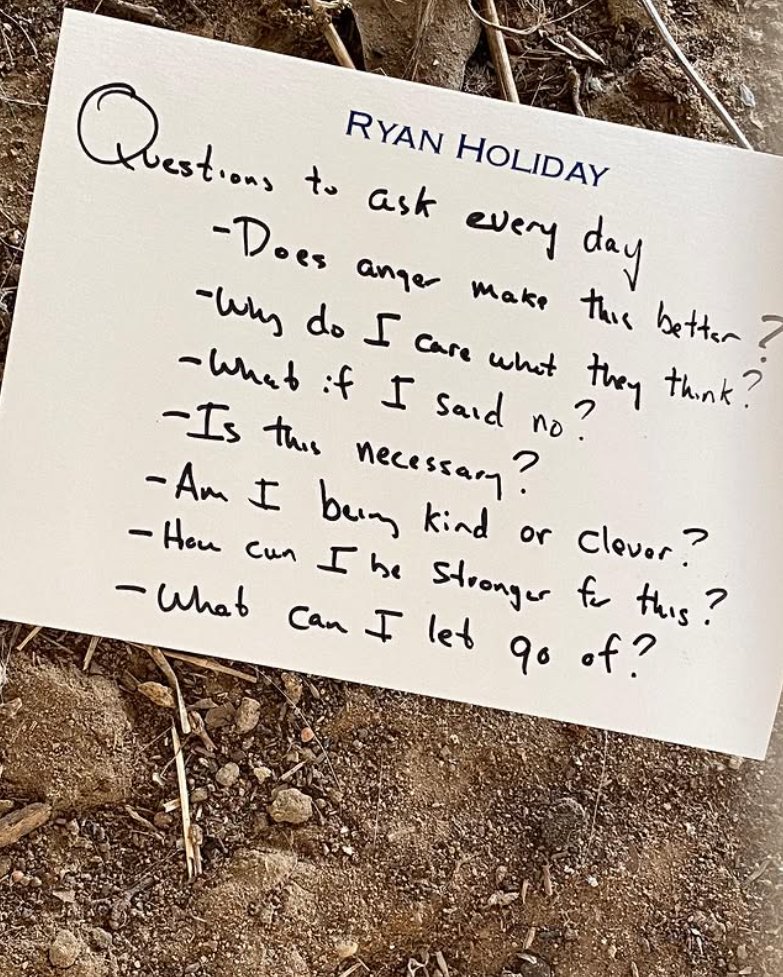 RYAN HOLIDAY
Questions to ask every day
-Does anger make this better?
-Why do I care what they think?
-What if I said no?
-Is this necessary?
-Am I being kind or clever?
-How can I be stronger for this?
-What can I let go of?